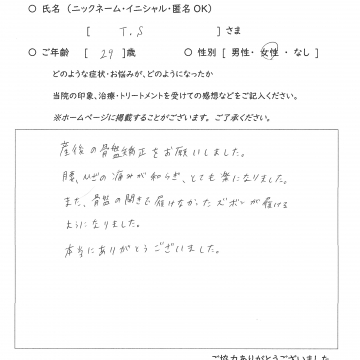 ○ 氏名（ニックネーム・イニシャル・匿名OK）
[ T.S ]さま
○ ご年齢 [ 29 ]歳 ○ 性別 [ 男性・女性・なし ]
どのような症状・お悩みが、どのようになったか
当院の印象、治療・トリートメントを受けての感想などをご記入ください。
※ホームページに掲載することがございます。ご了承ください。
産後の骨盤矯正をお願いしました。
腰、ひざの痛みが和らぎ、とても楽になりました。
また、骨盤の開きで履けなかったズボンが履ける
ようになりました。
本当にありがとうございました。
ご協力ありがとうございました